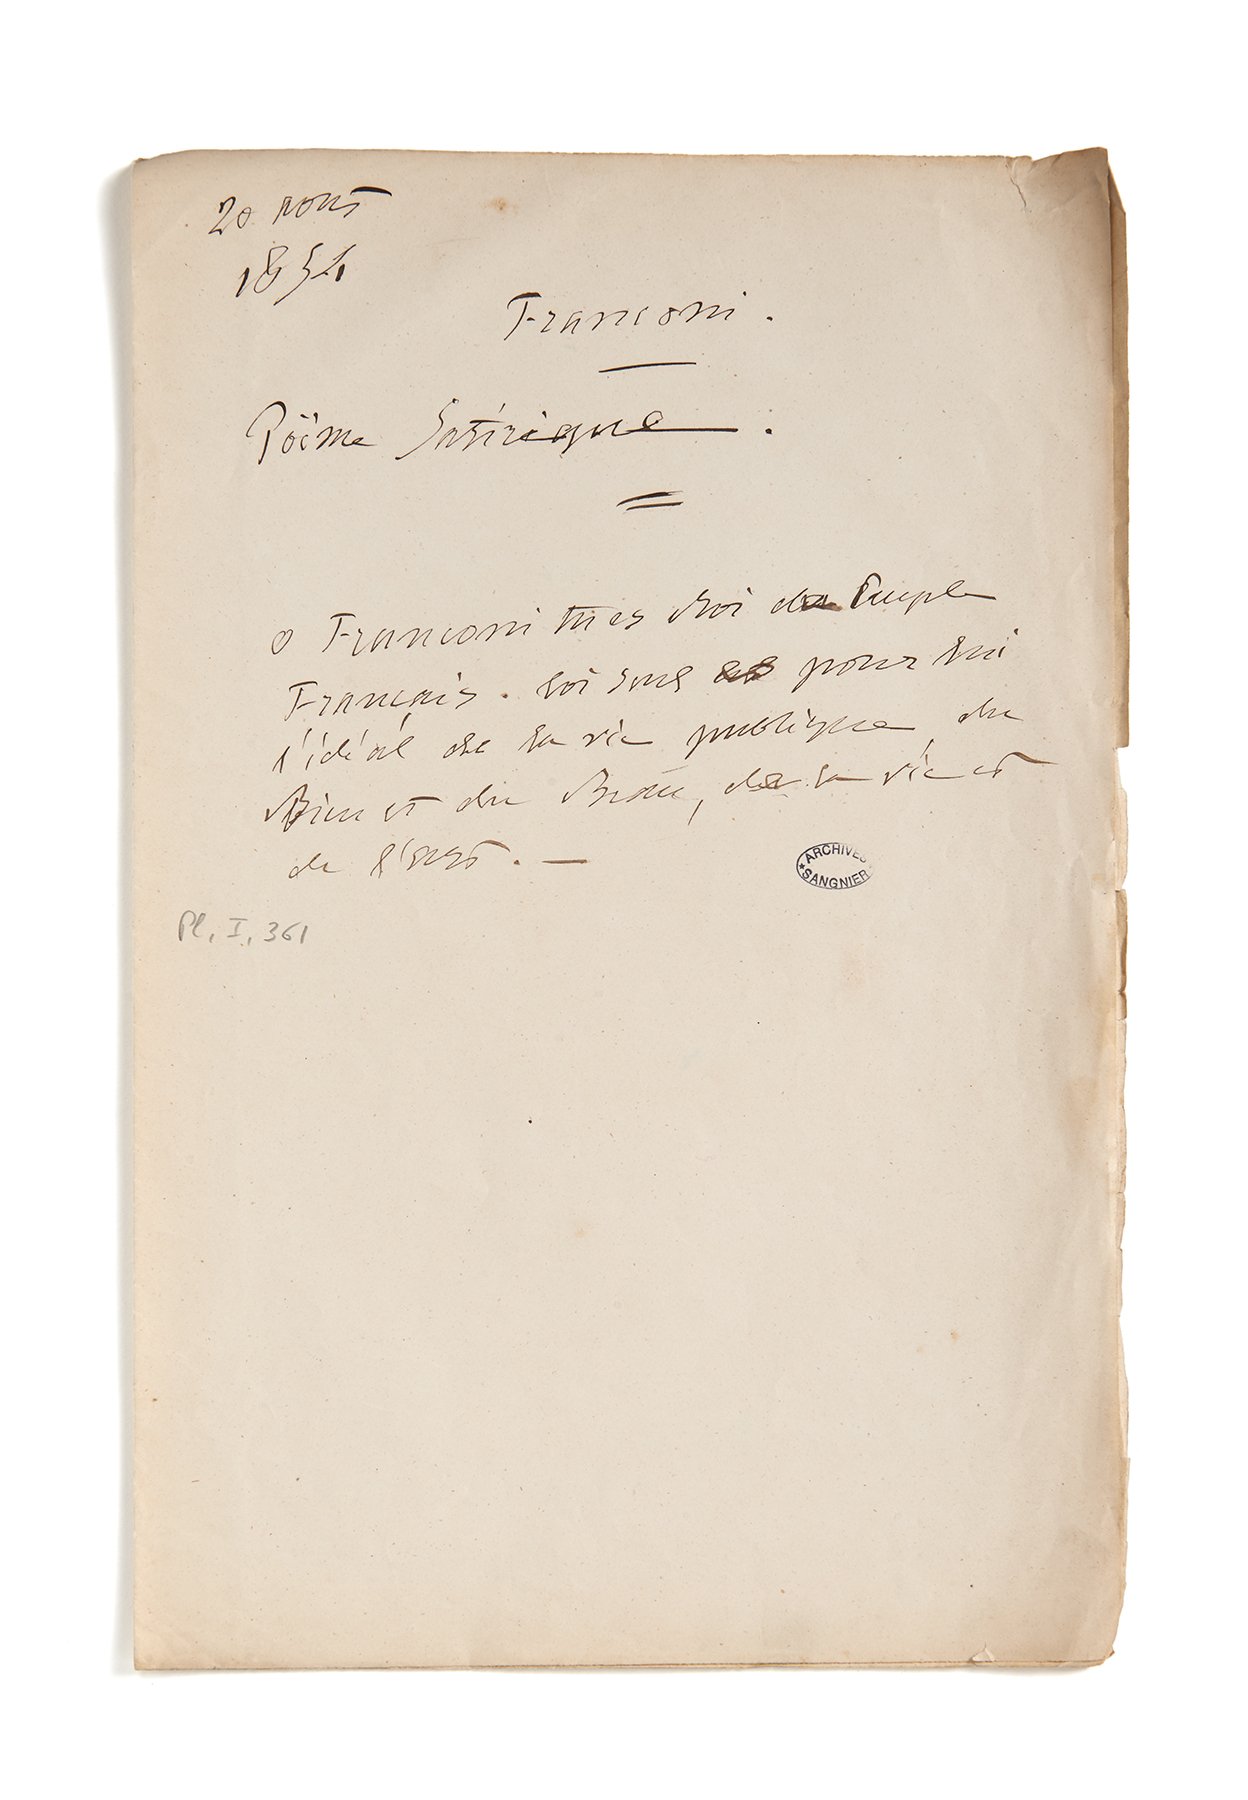 20 aout
1854
Franconi.
Poëme Satirique.
o Franconi tu es Roi du Peuple
Français. toi seul es pour lui
l'idéal de la vie publique, du
Bien et du Beau, de la vie et
de l'art. —
ARCHIVES
SANGNIER
Pl, I, 361